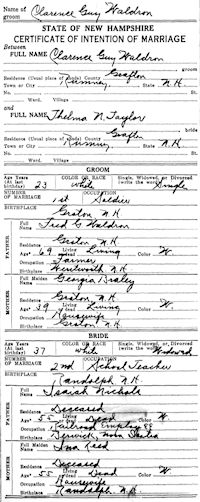 Name of groom Clarence Guy Waldron
STATE OF NEW HAMPSHIRE
CERTIFICATE OF INTENTION OF MARRIAGE
Between
FULL NAME Clarence Guy Waldron
groom
Grafton
Residence (Usual place of abode) County
City or Town Rumney State N.H.
No. St.
Ward. Village
and
FULL NAME Thelma N. Taylor
bride
Grafton
Residence (Usual place of abode) County
Rumney State N.H.
No. St.
Ward. Village
GROOM
Age Years (At last birthday) 23 COLOR OR RACE White Single, Widowed, or Divorced (write the word) Single
NUMBER OF MARRIAGE 1st OCCUPATION Soldier
BIRTHPLACE
Groton N.H.
FATHER
Full Name Fred G Waldron
Residence Groton N.H.
Age 69 Living or dead Living Color W.
Occupation Farmer
Birthplace Wentworth N.H.
MOTHER
Full Maiden Name Georgia Braley
Residence Groton N.H.
Age 39 Living or dead Living Color W.
Occupation Housewife
Birthplace Groton N.H.
BRIDE
Age Years (At last birthday) 37 COLOR OR RACE White Single, Widowed, or Divorced (write the word) Widowed
NUMBER OF MARRIAGE 2nd OCCUPATION School Teacher
BIRTHPLACE
Randolph N.H.
FATHER
Full Name Isaiah Nichols
Residence Deceased
Age 55 Living or dead Dead Color W
Occupation Railroad Employee
Birthplace Berwick, Nova Scotia
MOTHER
Full Maiden Name Reed
Residence Deceased
Age 55 Living or dead Dead Color W.
Occupation Housewife
Birthplace Randolph N.H.